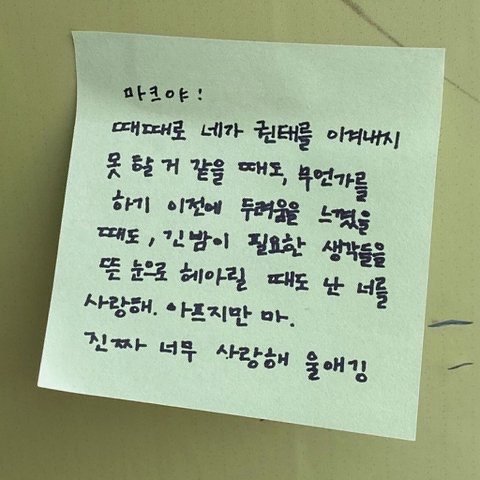 마크야!
때때로 네가 권태를 이겨내지
못 할 거 같을 때도, 무언가를
하기 이전에 두려움을 느꼈을
때도, 긴 밤이 필요한 생각들을
뜬 눈으로 헤아릴 때도 난 너를
사랑해. 아프지만 마.
진짜 너무 사랑해 울애깅